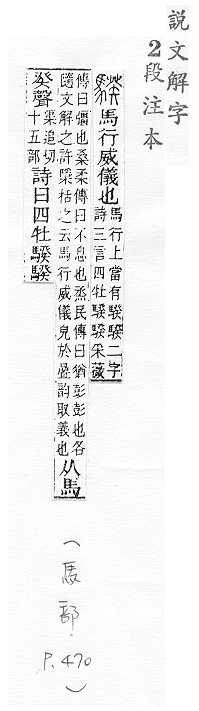 説文解字
2段注本
騤馬行威儀也
馬行上當有騤騤二字
詩三言四牡騤騤采薇
傳曰彊也桑柔傳曰不息也烝民傳曰猶彭彭也各
隨文解之許檃栝之云馬行威儀皃於疊韵取義也
从馬
癸聲
渠追切
十五部
詩曰四牡騤騤
(馬部. P.470)